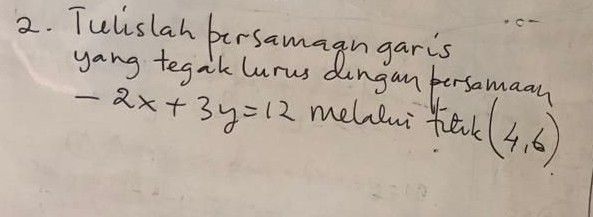 2. Tulislah persamaan garis
yang tegak lurus dengan persamaan
- 2x + 3y = 12 melalui titik (4,6)